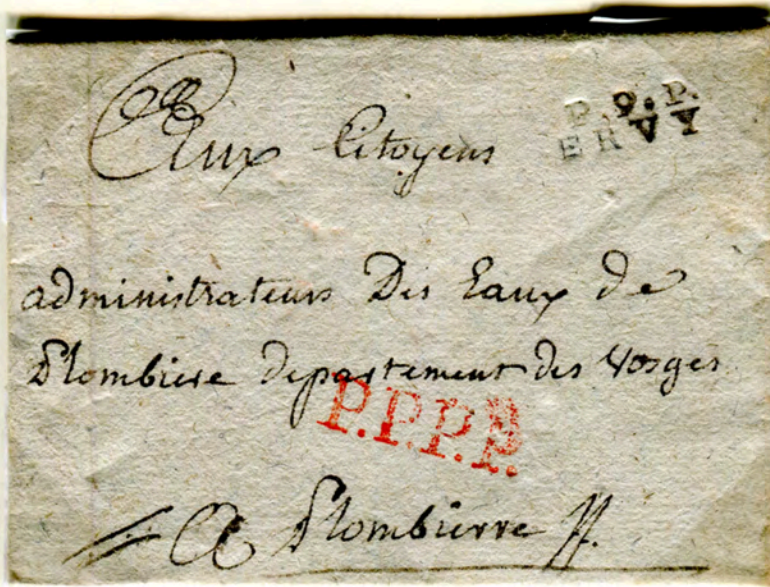 Aux Citoyens
P.9.P.
ERVY
administrateurs Des Eaux de
Plombiere departement des Vosges
P.P.P.P.
a Plombierre